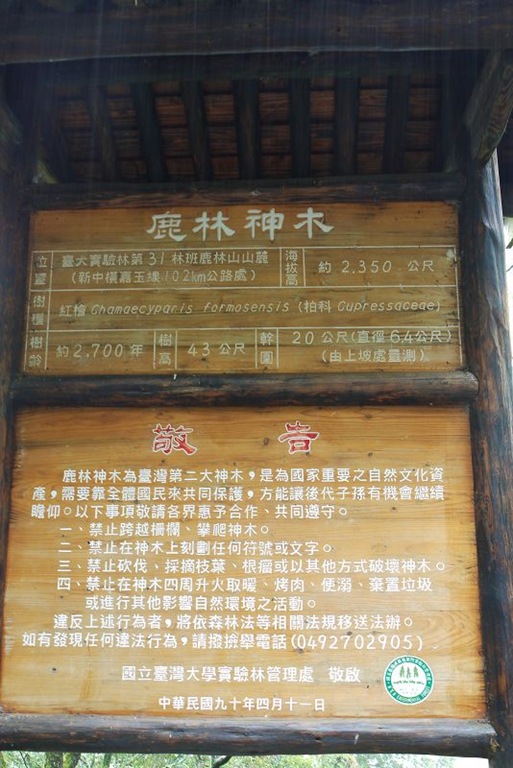 鹿林神木
位置 臺大實驗林第31林班鹿林山山麓 海拔高 約2,350公尺
(新中橫嘉玉線102km公路處)
樹種 紅檜 Chamaecyparis formosensis (柏科 Cupressaceae)
樹齡 約2,700年 樹高 43公尺 幹圍 20公尺(直徑6.4公尺)
(由上坡處量測)
敬告
鹿林神木為臺灣第二大神木,是為國家重要之自然文化資
產,需要靠全體國民來共同保護,方能讓後代子孫有機會繼續
瞻仰。以下事項敬請各界惠予合作、共同遵守。
一、禁止跨越柵欄、攀爬神木。
二、禁止在神木上刻劃任何符號或文字。
三、禁止砍伐、採摘枝葉、根瘤或以其他方式破壞神木。
四、禁止在神木四周升火取暖、烤肉、便溺、棄置垃圾
或進行其他影響自然環境之活動。
違反上述行為者,將依森林法等相關法規移送法辦。
如有發現任何違法行為,請撥檢舉電話(0492702905)
國立臺灣大學實驗林管理處 敬啟
中華民國九十年四月十一日